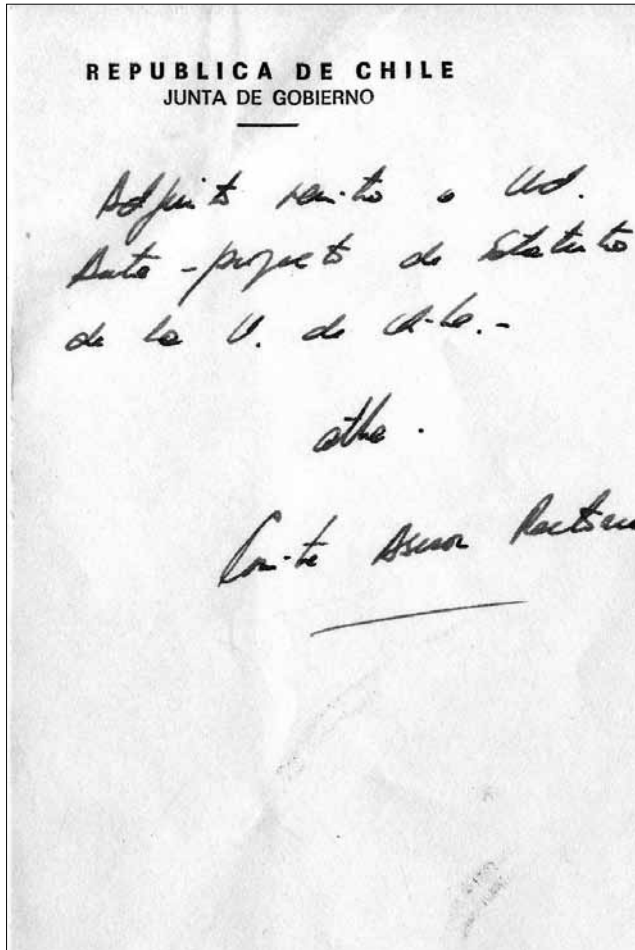 REPUBLICA DE CHILE
JUNTA DE GOBIERNO
Adjunto remito a Ud.
Ante-proyecto de Estatuto
de la U. de Chile.-
atte.
Comité Asesor